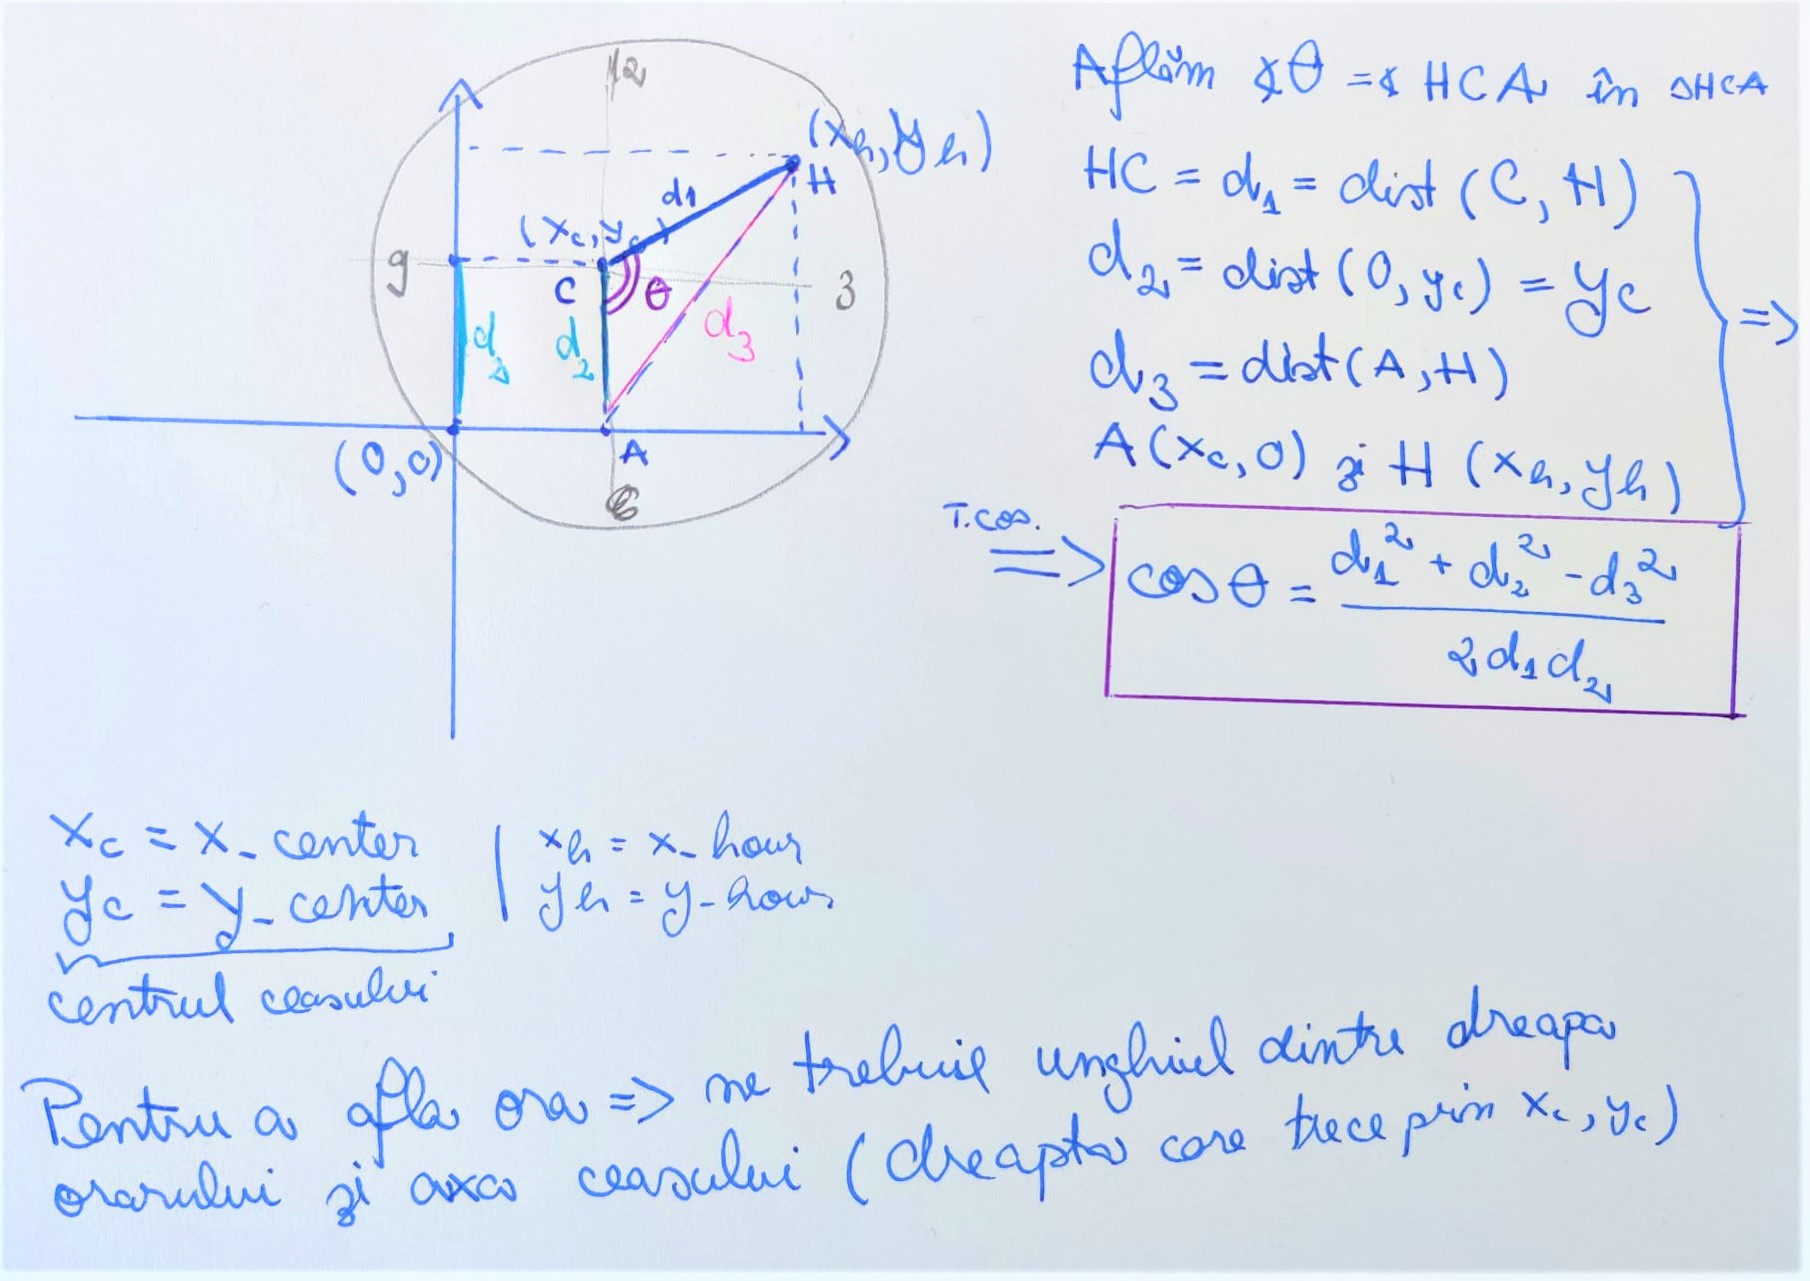 12
(xh, yh)
H
d1
(xc, yc)
9
C
θ
3
d2
d2
d3
(0,0)
A
6
Aflăm ∢θ = ∢ HCA în △HCA
HC = d₁ = dist (C, H)
d₂ = dist (0, yc) = yc
d₃ = dist (A, H)
A (xc, 0) și H (xh, yh)
=>
T. cos.
=> cos θ = (d₁² + d₂² - d₃²) / 2d₁d₂
xc = x_center | xh = x_hour
yc = y_center | yh = y_hour
centrul ceasului
Pentru a afla ora => ne trebuie unghiul dintre dreapa
orarului și axa ceasului (dreapta care trece prin xc, yc)